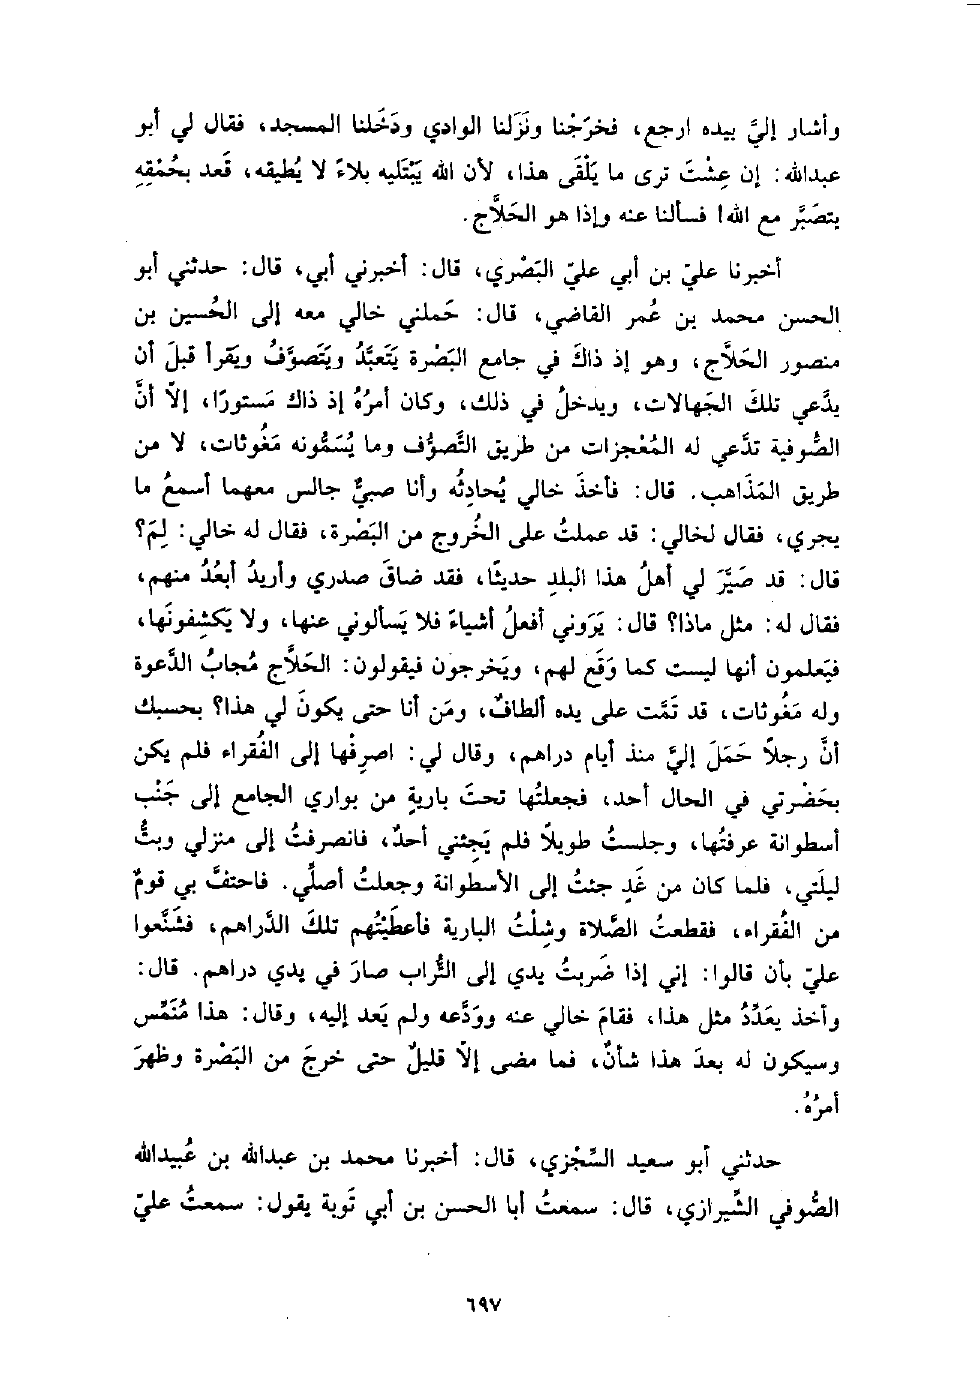 وأشار إليَّ بيده ارجع، فخرَجْنا ونَزَلنا الوادي ودَخَلنا المسجد، فقال لي أبو
عبدالله: إن عِشْتَ ترى ما يَلْقَى هذا، لأن الله يَبْتَليه بلاءً لا يُطيقه، قَعد بحُمْقِهِ
يتصَبَّر مع الله! فسألنا عنه وإذا هو الحَلاَّج.
أخبرنا عليّ بن أبي عليّ البَصْري، قال: أخبرني أبي، قال: حدثني أبو
الحسن محمد بن عُمر القاضي، قال: حَملني خالي معه إلى الحُسين بن
منصور الحَلاَّج، وهو إذ ذاكَ في جامع البَصْرة يَتَعبَّدُ ويَتَصوَّفُ ويَقرأ قبلَ أن
يدَّعي تلكَ الجَهالات، ويدخلُ في ذلك، وكان أمرُهُ إذ ذاك مَستورًا، إلاَّ أنَّ
الصُّوفية تدَّعي له المُعْجزات من طريق التَّصوُّف وما يُسَمُّونه مَغُوثات، لا من
طريق المَذَاهب. قال: فأخذَ خالي يُحادِثُه وأنا صبيٌّ جالس معهما أسمعُ ما
يجري، فقال لخالي: قد عملتُ على الخُروج من البَصْرة، فقال له خالي: لِمَ؟
قال: قد صَيَّرَ لي أهلُ هذا البلدِ حديثًا، فقد ضاقَ صدري وأريدُ أبعُدُ منهم،
فقال له: مثل ماذا؟ قال: يَرَوني أفعلُ أشياءً فلا يَسألوني عنها، ولا يَكشِفونَها،
فيَعلمون أنها ليست كما وَقَع لهم، ويَخرجون فيقولون: الحَلاَّج مُجابُ الدَّعوة
وله مَغُوثات، قد تَمَّت على يده ألطافٌ، ومَن أنا حتى يكونَ لي هذا؟ بحسبك
أنَّ رجلاً حَمَلَ إليَّ منذ أيام دراهم، وقال لي: اصرِفْها إلى الفُقراء فلم يكن
بحَضْرتي في الحال أحد، فجعلتُها تحتَ باريةٍ من بواري الجامع إلى جَنْب
أسطوانة عرفتُها، وجلستُ طويلاً فلم يَجِئني أحدٌ، فانصرفتُ إلى منزلي وبتُّ
ليلَتي، فلما كان من غَدٍ جئتُ إلى الأسطوانة وجعلتُ أصلِّي. فاحتفَّ بي قومٌ
من الفُقراء، فقطعتُ الصَّلاة وشِلْتُ البارية فأعطَيْتُهم تلكَ الدَّراهم، فشَنَّعوا
عليّ بأن قالوا: إني إذا ضَربتُ يدي إلى التُّراب صارَ في يدي دراهم. قال:
وأخذ يعَدِّدُ مثل هذا، فقامَ خالي عنه وودَّعه ولم يَعد إليه، وقال: هذا مُنَمِّس
وسيكون له بعدَ هذا شأنٌ، فما مضى إلاَّ قليلٌ حتى خرجَ من البَصْرة وظهرَ
أمرُهُ.
حدثني أبو سعيد السِّجْزي، قال: أخبرنا محمد بن عبدالله بن عُبيدالله
الصُّوفي الشِّيرازي، قال: سمعتُ أبا الحسن بن أبي تَوبة يقول: سمعتُ عليّ
٦٩٧